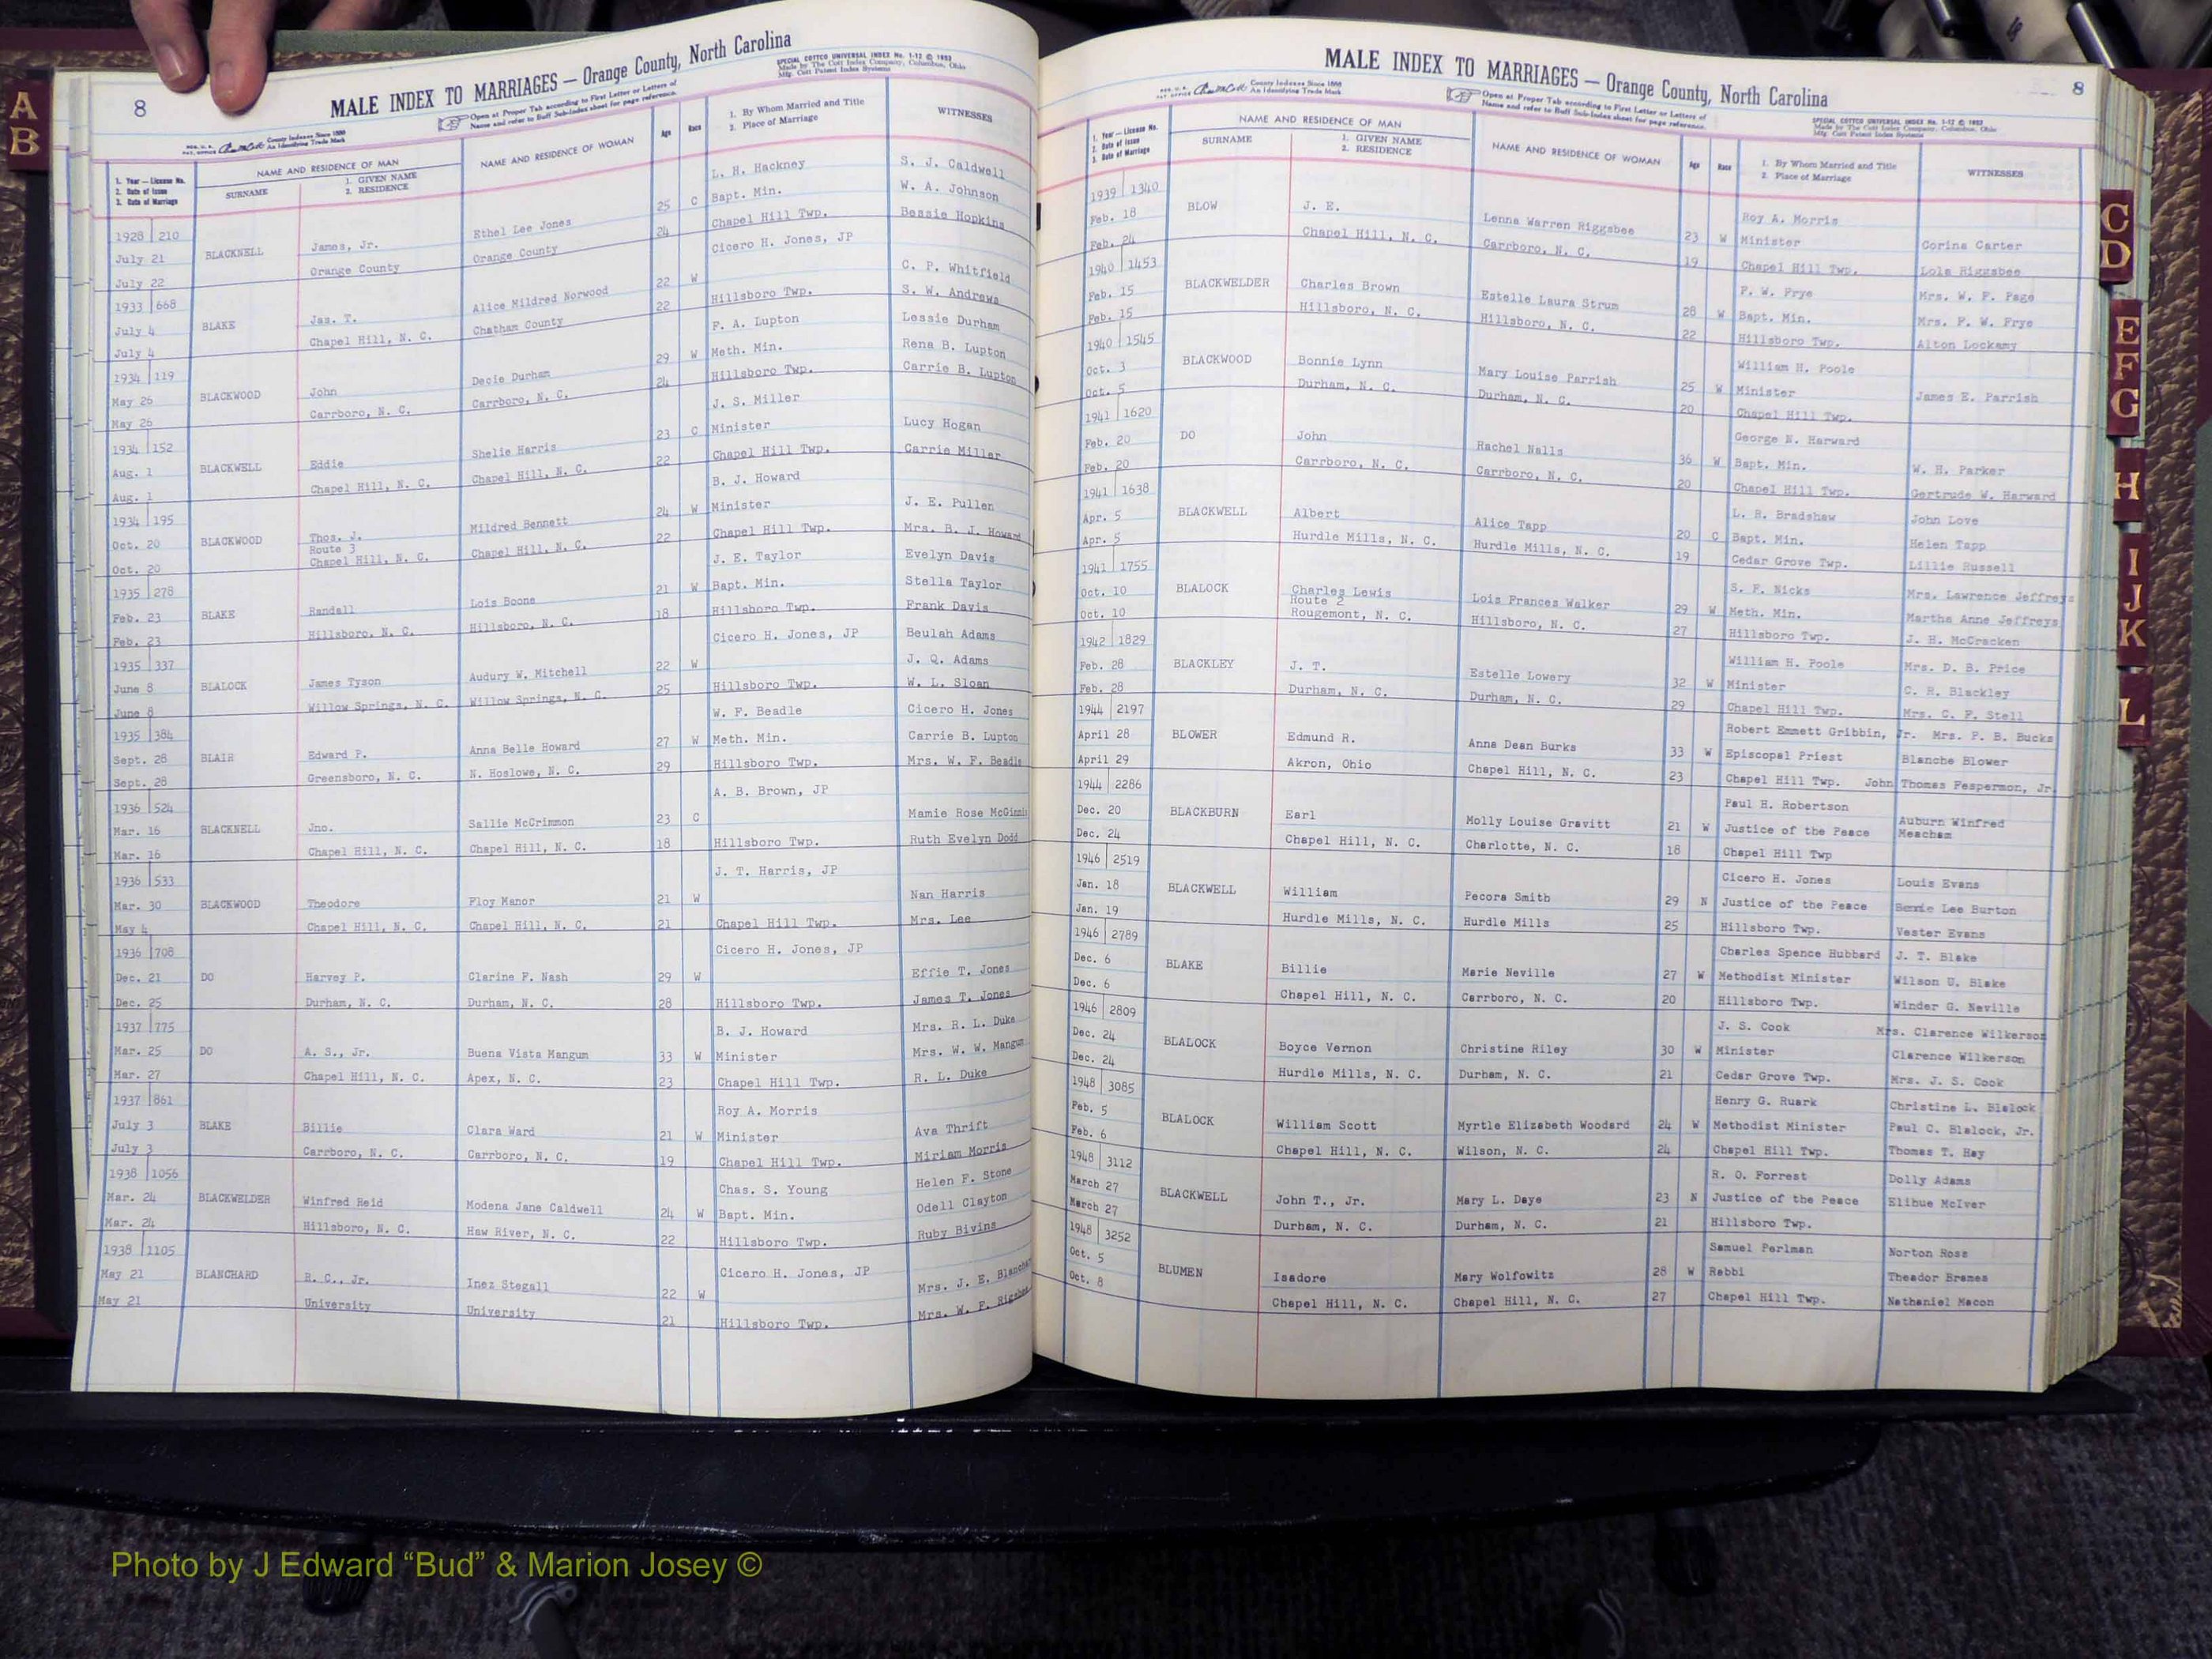 8
MALE INDEX TO MARRIAGES — Orange County, North Carolina
SPECIAL COTTCO UNIVERSAL INDEX No. 1-12 © 1953
Made by The Cott Index Company, Columbus, Ohio
Mfg. Cott Patent Index Systems
County Indexes Since 1888
An Identifying Trade Mark
Open at Proper Tab according to First Letter or Letters of
Name and refer to Buff Sub-Index sheet for page reference.
1. Year — License No.
2. Date of Issue
3. Date of Marriage
NAME AND RESIDENCE OF MAN
SURNAME
1. GIVEN NAME
2. RESIDENCE
NAME AND RESIDENCE OF WOMAN
Age
Race
1. By Whom Married and Title
2. Place of Marriage
WITNESSES
1928 210 L. H. Hackney S. J. Caldwell
July 21 BLACKNELL James, Jr. Ethel Lee Jones 25 C Bapt. Min. W. A. Johnson
July 22 Orange County Orange County 24 Chapel Hill Twp. Bessie Hopkins
1933 668 Cicero H. Jones, JP
July 4 BLAKE Jas. T. Alice Mildred Norwood 22 W C. P. Whitfield
July 4 Chapel Hill, N. C. Chatham County 22 Hillsboro Twp. S. W. Andrews
1934 119 F. A. Lupton Lessie Durham
May 26 BLACKWOOD John Decie Durham 29 W Meth. Min. Rena B. Lupton
May 26 Carrboro, N. C. Carrboro, N. C. 24 Hillsboro Twp. Carrie B. Lupton
1934 152 J. S. Miller
Aug. 1 BLACKWELL Eddie Shelie Harris 23 C Minister Lucy Hogan
Aug. 1 Chapel Hill, N. C. Chapel Hill, N. C. 22 Chapel Hill Twp. Carrie Miller
1934 195 B. J. Howard
Oct. 20 BLACKWOOD Thos. J. Mildred Bennett 24 W Minister J. E. Pullen
Route 3
Oct. 20 Chapel Hill, N. C. Chapel Hill, N. C. 22 Chapel Hill Twp. Mrs. B. J. Howard
1935 278 J. E. Taylor Evelyn Davis
Feb. 23 BLAKE Randall Lois Boone 21 W Bapt. Min. Stella Taylor
Feb. 23 Hillsboro, N. C. Hillsboro, N. C. 18 Hillsboro Twp. Frank Davis
1935 337 Cicero H. Jones, JP Beulah Adams
June 8 BLALOCK James Tyson Audury W. Mitchell 22 W J. Q. Adams
June 8 Willow Springs, N. C. Willow Springs, N. C. 25 Hillsboro Twp. W. L. Sloan
1935 384 W. F. Beadle Cicero H. Jones
Sept. 28 BLAIR Edward P. Anna Belle Howard 27 W Meth. Min. Carrie B. Lupton
Sept. 28 Greensboro, N. C. N. Hoslowe, N. C. 29 Hillsboro Twp. Mrs. W. F. Beadle
1936 524 A. B. Brown, JP
Mar. 16 BLACKNELL Jno. Sallie McCrimmon 23 C Mamie Rose McGinnis
Mar. 16 Chapel Hill, N. C. Chapel Hill, N. C. 18 Hillsboro Twp. Ruth Evelyn Dodd
1936 533 J. T. Harris, JP
Mar. 30 BLACKWOOD Theodore Floy Manor 21 W Nan Harris
May 4 Chapel Hill, N. C. Chapel Hill, N. C. 21 Chapel Hill Twp. Mrs. Lee
1936 708 Cicero H. Jones, JP
Dec. 21 DO Harvey P. Clarine F. Nash 29 W Effie T. Jones
Dec. 25 Durham, N. C. Durham, N. C. 28 Hillsboro Twp. James T. Jones
1937 775 B. J. Howard Mrs. R. L. Duke
Mar. 25 DO A. S., Jr. Buena Vista Mangum 33 W Minister Mrs. W. W. Mangum
Mar. 27 Chapel Hill, N. C. Apex, N. C. 23 Chapel Hill Twp. R. L. Duke
1937 861 Roy A. Morris
July 3 BLAKE Billie Clara Ward 21 W Minister Ava Thrift
July 3 Carrboro, N. C. Carrboro, N. C. 19 Chapel Hill Twp. Miriam Morris
1938 1056 Chas. S. Young Helen F. Stone
Mar. 24 BLACKWELDER Winfred Reid Modena Jane Caldwell 24 W Bapt. Min. Odell Clayton
Mar. 24 Hillsboro, N. C. Haw River, N. C. 22 Hillsboro Twp. Ruby Bivins
1938 1105 Cicero H. Jones, JP
May 21 BLANCHARD R. C., Jr. Inez Stegall 22 W Mrs. J. E.
May 21 University University 21 Hillsboro Twp. Mrs. W. F.
8
MALE INDEX TO MARRIAGES — Orange County, North Carolina
County Indexes Since 1888
An Identifying Trade Mark
Open at Proper Tab according to First Letter or Letters of
Name and refer to Buff Sub-Index sheet for page reference.
SPECIAL COTTCO UNIVERSAL INDEX No. 1-12 © 1953
Made by The Cott Index Company, Columbus, Ohio
Mfg. Cott Patent Index Systems
1. Year — License No.
2. Date of Issue
3. Date of Marriage
NAME AND RESIDENCE OF MAN
SURNAME
1. GIVEN NAME
2. RESIDENCE
NAME AND RESIDENCE OF WOMAN
Age
Race
1. By Whom Married and Title
2. Place of Marriage
WITNESSES
1939 1340 Roy A. Morris
Feb. 18 BLOW J. E. Lenna Warren Riggsbee 23 W Minister Corina Carter
Feb. 24 Chapel Hill, N. C. Carrboro, N. C. 19 Chapel Hill Twp. Lola Riggsbee
1940 1453 P. W. Frye Mrs. W. F. Page
Feb. 15 BLACKWELDER Charles Brown Estelle Laura Strum 28 W Bapt. Min. Mrs. P. W. Frye
Feb. 15 Hillsboro, N. C. Hillsboro, N. C. 22 Hillsboro Twp. Alton Lockamy
1940 1545 William H. Poole
Oct. 3 BLACKWOOD Bonnie Lynn Mary Louise Parrish 25 W Minister James E. Parrish
Oct. 5 Durham, N. C. Durham, N. C. 20 Chapel Hill Twp.
1941 1620 George N. Harward
Feb. 20 DO John Rachel Nalls 36 W Bapt. Min. W. H. Parker
Feb. 20 Carrboro, N. C. Carrboro, N. C. 20 Chapel Hill Twp. Gertrude W. Harward
1941 1638 L. R. Bradshaw John Love
Apr. 5 BLACKWELL Albert Alice Tapp 20 C Bapt. Min. Helen Tapp
Apr. 5 Hurdle Mills, N. C. Hurdle Mills, N. C. 19 Cedar Grove Twp. Lillie Russell
1941 1755 S. F. Nicks Mrs. Lawrence Jeffreys
Oct. 10 BLALOCK Charles Lewis Lois Frances Walker 29 W Meth. Min. Martha Anne Jeffreys
Route 2
Oct. 10 Rougemont, N. C. Hillsboro, N. C. 27 Hillsboro Twp. J. H. McCracken
1942 1829 William H. Poole Mrs. D. B. Price
Feb. 28 BLACKLEY J. T. Estelle Lowery 32 W Minister C. R. Blackley
Feb. 28 Durham, N. C. Durham, N. C. 29 Chapel Hill Twp. Mrs. C. F. Stell
1944 2197 Robert Emmett Gribbin, Jr. Mrs. P. B. Bucks
April 28 BLOWER Edmund R. Anna Dean Burks 33 W Episcopal Priest Blanche Blower
April 29 Akron, Ohio Chapel Hill, N. C. 23 Chapel Hill Twp. John Thomas Fespermon, Jr.
1944 2286 Paul H. Robertson
Dec. 20 BLACKBURN Earl Molly Louise Gravitt 21 W Justice of the Peace Auburn Winfred
Meacham
Dec. 24 Chapel Hill, N. C. Charlotte, N. C. 18 Chapel Hill Twp
1946 2519 Cicero H. Jones Louis Evans
Jan. 18 BLACKWELL William Pecora Smith 29 N Justice of the Peace Lee Burton
Jan. 19 Hurdle Mills, N. C. Hurdle Mills 25 Hillsboro Twp. Vester Evans
1946 2789 Charles Spence Hubbard J. T. Blake
Dec. 6 BLAKE Billie Marie Neville 27 W Methodist Minister Wilson U. Blake
Dec. 6 Chapel Hill, N. C. Carrboro, N. C. 20 Hillsboro Twp. Winder G. Neville
1946 2809 J. S. Cook Mrs. Clarence Wilkerson
Dec. 24 BLALOCK Boyce Vernon Christine Riley 30 W Minister Clarence Wilkerson
Dec. 24 Hurdle Mills, N. C. Durham, N. C. 21 Cedar Grove Twp. Mrs. J. S. Cook
1948 3085 Henry G. Ruark Christine L. Blalock
Feb. 5 BLALOCK William Scott Myrtle Elizabeth Woodard 24 W Methodist Minister Paul C. Blalock, Jr.
Feb. 6 Chapel Hill, N. C. Wilson, N. C. 24 Chapel Hill Twp. Thomas T. Hay
1948 3112 R. O. Forrest Dolly Adams
March 27 BLACKWELL John T., Jr. Mary L. Daye 23 N Justice of the Peace Elibue McIver
March 27 Durham, N. C. Durham, N. C. 21 Hillsboro Twp.
1948 3252 Samuel Perlman Norton Ross
Oct. 5 BLUMEN Isadore Mary Wolfowitz 28 W Rabbi Theador Brames
Oct. 8 Chapel Hill, N. C. Chapel Hill, N. C. 27 Chapel Hill Twp. Nathaniel Macon
A
B
C
D
E
F
G
H
I
J
K
L
Photo by J Edward “Bud” & Marion Josey ©